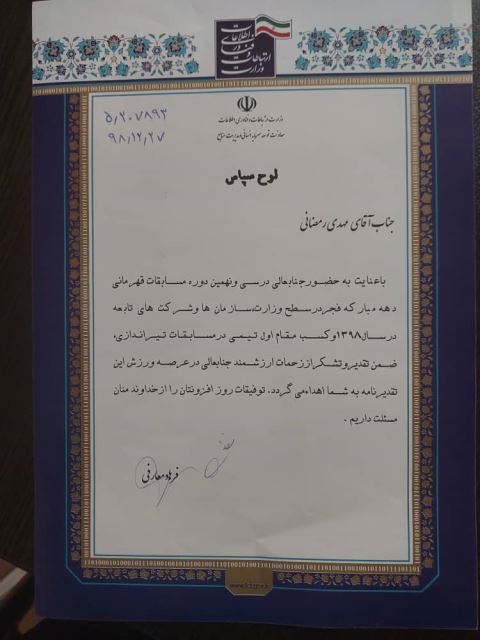 وزارت ارتباطات و فناوری اطلاعات
۵/۲۰۷۸۹۳
۹۸/۱۲/۲۷
وزارت ارتباطات و فناوری اطلاعات
معاونت توسعه سرمایه انسانی و مدیریت منابع
لوح سپاس
جناب آقای مهدی رمضانی
باعنایت به حضور جنابعالی درسی ونهمین دوره مسابقات قهرمانی
دهه مبارکه فجردرسطح وزارت،سازمان ها وشرکت های تابعه
درسال۱۳۹۸وکسب مقام اول تیمی درمسابقات تیراندازی،
ضمن تقدیروتشکراززحمات ارزشمند جنابعالی درعرصه ورزش این
تقدیرنامه به شما اهداءمی گردد. توفیقات روز افزونتان را ازخداوند منان
مسئلت داریم .
فرهاد معارفی